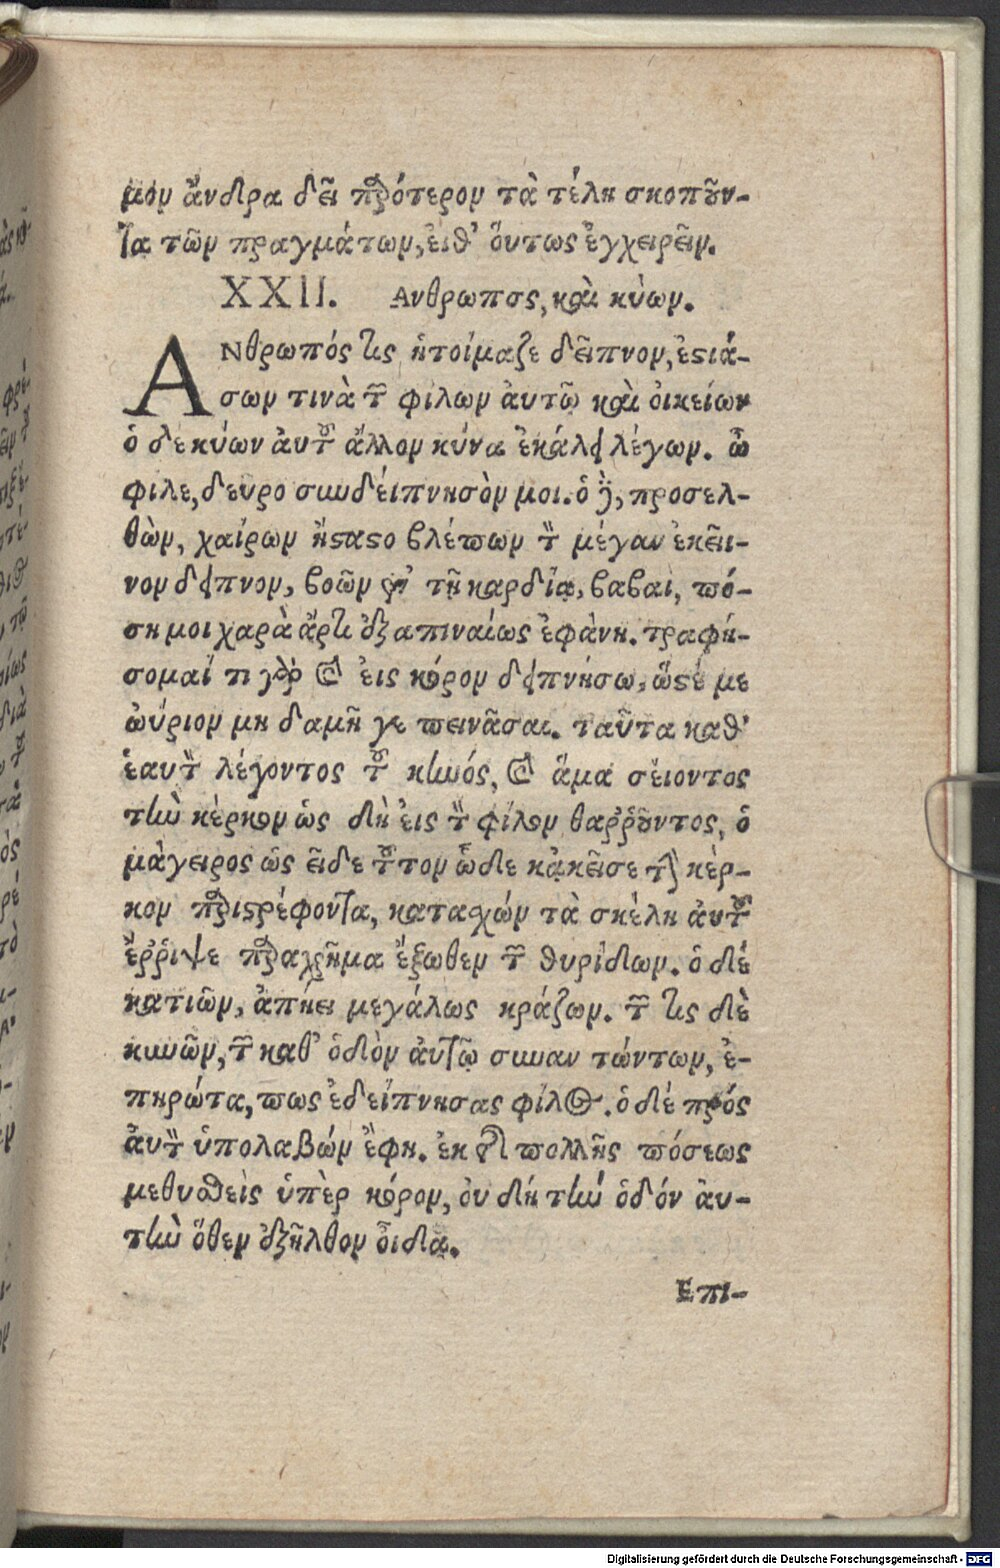 μον ἄνδρα δεῖ πρότερον τὰ τέλη σκοποῦν-
τα τῶν πραγμάτων, εἶθ' οὕτως ἐγχειρεῖν.
XXII. Ανθρωπος, καὶ κύων.
ΑΝθρωπός τις ἡτοίμαζε δεῖπνον, ἑστιά-
σων τινὰ τῶν φίλων ἀυτῷ καὶ ὀικείων
ὁ δε κύων ἀυτοῦ ἄλλον κύνα ἐκάλει λέγων. ὦ
φίλε, δευρο συνδείπνησὸν μοι. ὁ δὲ, προσελ-
θὼν, χαίρων ἥστατο βλέπων τὸν μέγαν ἐκεῖ-
νον δεῖπνον, βοῶν ἐν τῇ καρδίᾳ, βαβαὶ, πό-
ση μοι χαρὰ ἄρτι ἐξαπιναίως ἐφὰνη. τραφή-
σομαί τι γὰρ καὶ ἐις κόρον δειπνήσω, ὥστέ με
ἀύριον μη δαμῆ γε πεινᾶσαι. ταῦτα καθ'
ἑαυτὸν λέγοντος τοῦ κυνός, καὶ ἅμα σείοντος
τὴν κὲρκον ὡς δὴ ἐις τὸν φίλον θαῤῥοῦντος, ὁ
μάγειρος ὡς εἶδε τοῦτον ὧδε κᾀκεῖσε τὴν κὲρ-
κον περιστρέφοντα, κατασχών τὰ σκέλη ἀυτοῦ
ἔῤῥιψε παραχρῆμα ἔξωθεν τῶν θυρίδων. ὁ δέ
κατιῶν, ἀπῄει μεγάλως κράζων. τῶν τις δὲ
κυνῶν, τῶν καθ' ὁδὸν ἀυτῷ συναντώντων, ἐ-
πηρώτα, πως ἐδείπνησας φίλος. ὁ δέ πρός
ἀυτὸν ὑπολαβών ἔφη. ἐκ τῆς πολλῆς πόσεως
μεθυσθεὶς ὑπὲρ κόρον, ὀυ δή τὴν ὁδόν ἀυ-
τὴν ὅθεν ἐξῆλθον οἶδα.
Επι-
Digitalisierung gefördert durch die Deutsche Forschungsgemeinschaft - DFG